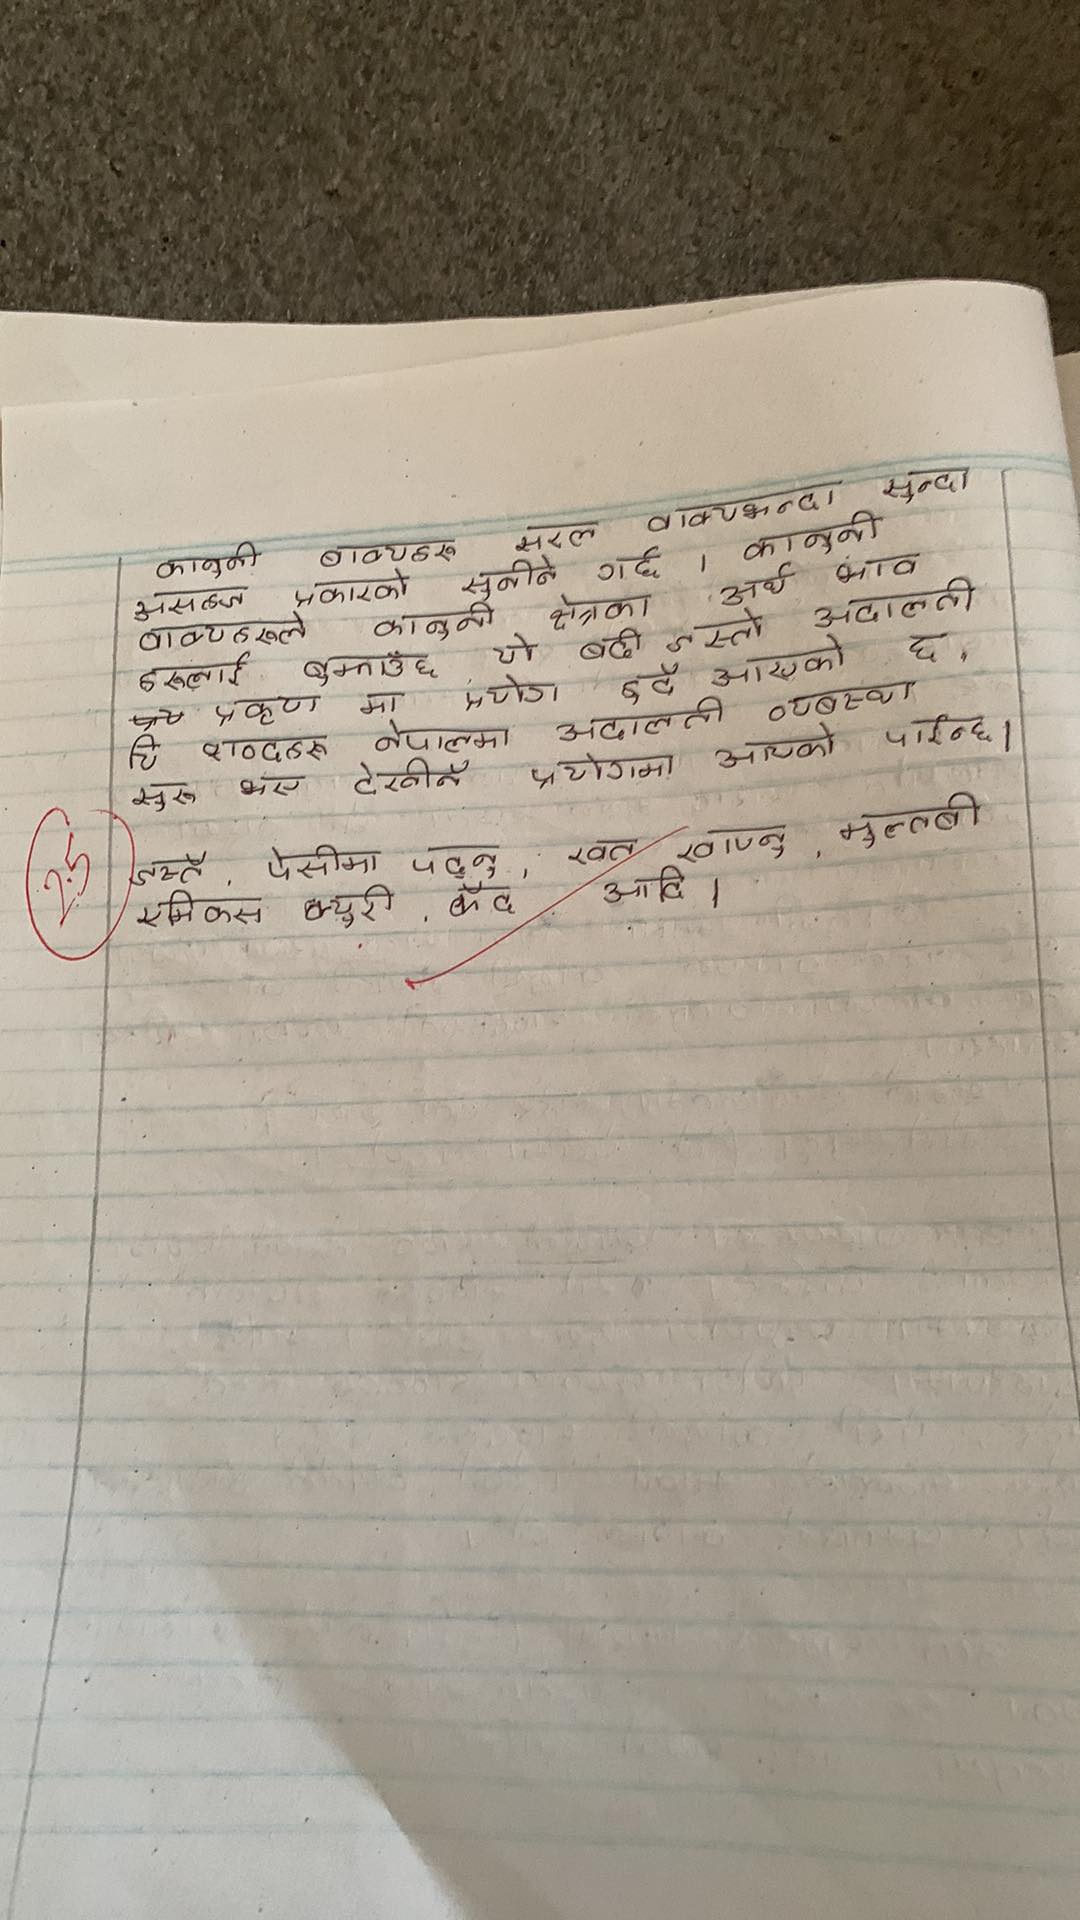 कानुनी बाक्यहरू सरल वाक्यभन्दा सुन्दा
असहज प्रकारको सुनीने गर्छ । कानुनी
वाक्यहरूले कानुनी क्षेत्रका अर्थ भाव
हरूलाई बुझाउँछ यो बढी जस्तो अदालती
प्रकृण मा प्रयोग हुदै आएको छ,
यि शब्दहरू नेपालमा अदालती व्यबस्था
सुरू भए देखीनै प्रयोगमा आएको पाईन्छ।
2.5
जस्तै, पेसीमा पद्नु, खत खाप्नु, मुल्तबी
एमिकस क्युरी, कैद आदि।